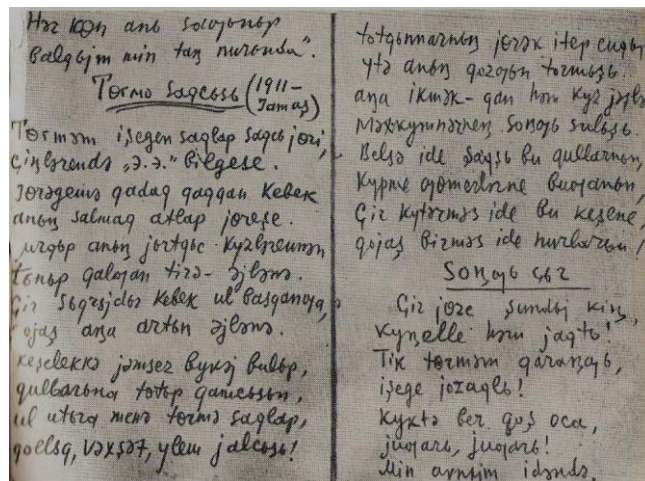 Hər kөn anь sajojoньp
Balqьjm min taꞑ nurьnda".
Tөrmə saqcьsь (1911–
Jamaş)
Tөrməm işegen saqlap saqcь jөri,
Çiꞑlərendə „Ə.Ə." bilgese.
Jөrəgemə qadaq qaqqan kebek
anьꞑ salmaq atlap jөreşe.
urgьp anьꞑ jьrtqьc kyzlərennən
tonьp qalƣan tirə-əjlənə.
Çir sьqrajdьr kebek ul basqanƣa,
qojaş aꞑa artьn əjlənə.
keşelekkə jəmsez bykəj bulьp,
qullarьna totьp qamcьsьn,
ul utьra menə tөrmə saqlap,
qollьq, vəxşət, ylem jalcьsь!
totqьnnarnьꞑ jөrək itep cuqьp
ytə anьꞑ qozƣьn tormьşь.
aꞑa ikmək-qan həm kyz jəşlə
Məxkymnərneꞑ soꞑƣь sulьşь.
Belsə ide saqcь bu qullarnьꞑ
Kypme ƣөmerlərne buƣanьn,
Çir kytərməs ide bu keşene,
qojaş birməs ide nurlarьn!
Soꞑƣь çьr
Çir jөze şundьj kiꞑ,
kyꞑelle həm jaqtь!
Tik tөrməm qaraꞑƣь,
işege jozaqlь!
kyktə ber qoş oca,
juƣarь, juƣarь!
Min awnьjm idəndə,